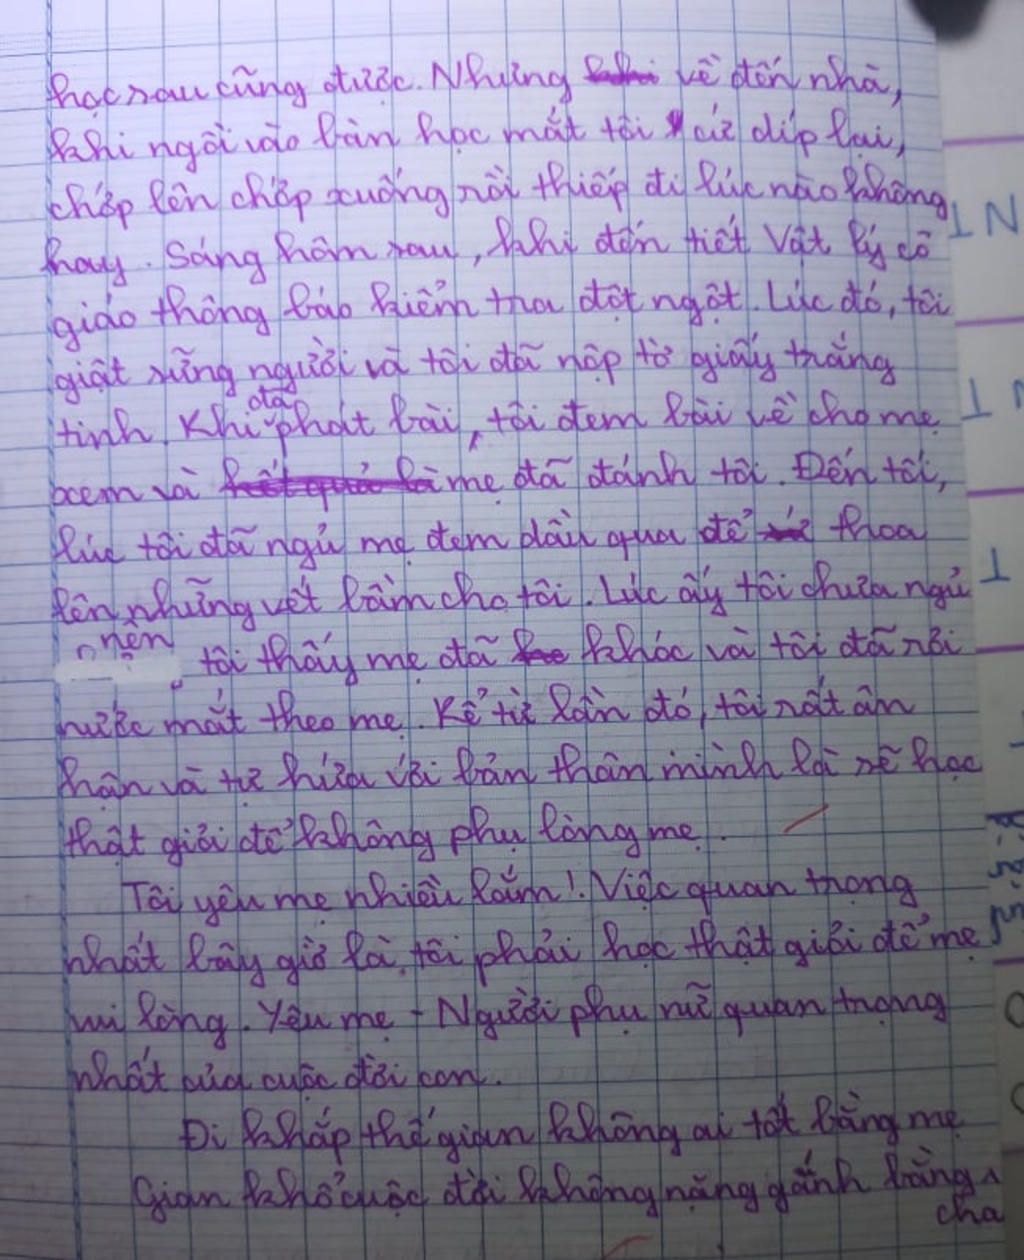 học sau cũng được. Nhưng về đến nhà,
khi ngồi vào bàn học mắt tôi cứ díp lại,
chớp lên chớp xuống rồi thiếp đi lúc nào không
hay. Sáng hôm sau, khi đến tiết Vật lý cô
giáo thông báo kiểm tra đột ngột. Lúc đó, tôi
giật sững người và tôi đã nộp tờ giấy trắng
tinh. Khi đã phát bài, tôi đem bài về cho mẹ
xem và mẹ đã đánh tôi. Đến tối,
lúc tôi đã ngủ mẹ đem dầu qua để thoa
lên những vết bầm cho tôi. Lúc ấy tôi chưa ngủ
nên tôi thấy mẹ đã khóc và tôi đã rơi
nước mắt theo mẹ. Kể từ lần đó, tôi rất ân
hận và tự hứa với bản thân mình là sẽ học
thật giỏi để không phụ lòng mẹ.
Tôi yêu mẹ nhiều lắm! Việc quan trọng
nhất bây giờ là, tôi phải học thật giỏi để mẹ
vui lòng. Yêu mẹ - Người phụ nữ quan trọng
nhất của cuộc đời con.
Đi khắp thế gian không ai tốt bằng mẹ
Gian khổ cuộc đời không nặng gánh bằng
cha